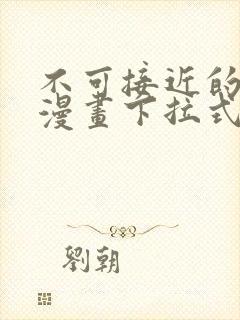 不可接近的
漫畫下拉式
劉朝